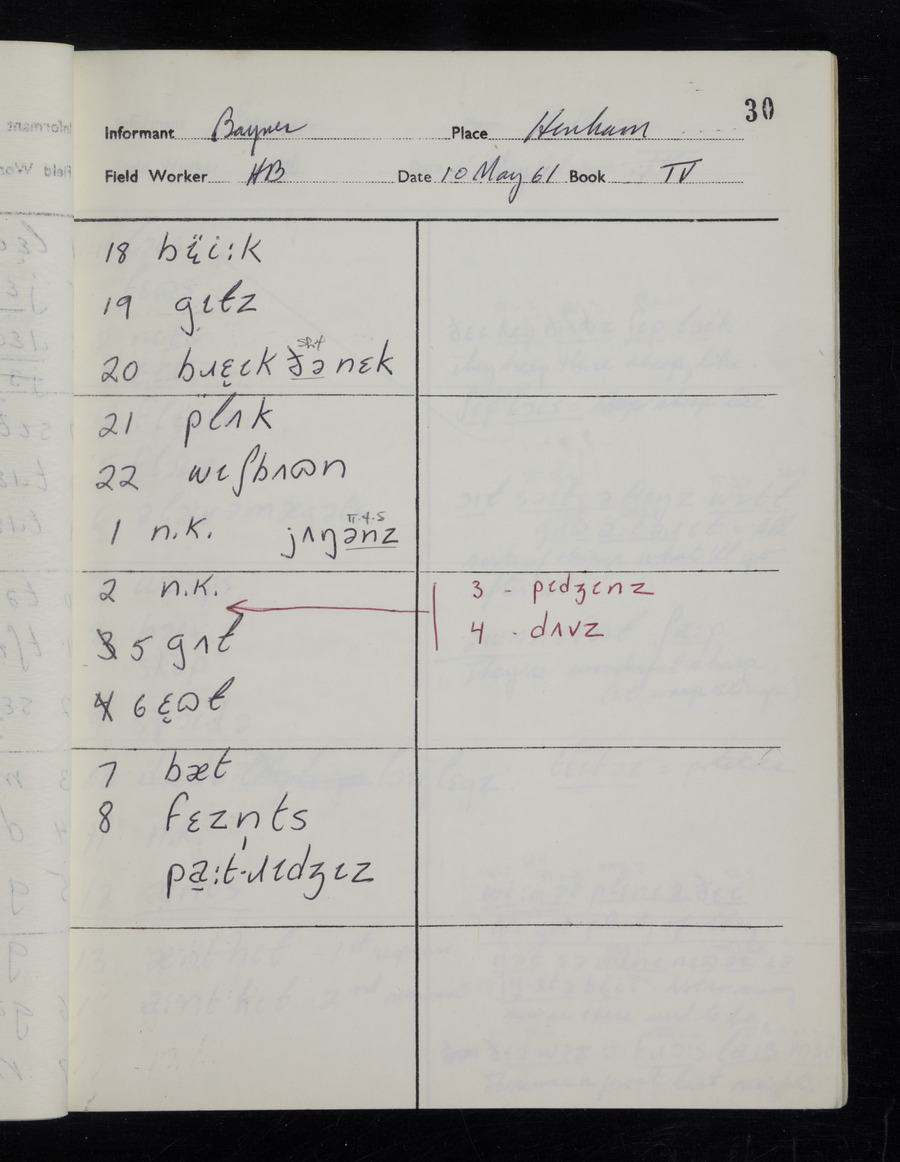 30
Informant Bayner Place Henham
Field Worker HB Date 10 May 61 Book IV
18 bë̞i:k
19 gɪtz
20 bɹɛ̞ɪk ðə nɛk
21 plʌk
22 wɪʃbʌɷn
1 n.k. jʌŋənz
II.4.5
2 n.k.
5 gʌt
6 ɛ̞ɷt
7 bæt
8 fɛzn̩ts
pa̠:t·ɹɪdʒɪz
3 - pɪdʒɪnz
4 - dʌvz